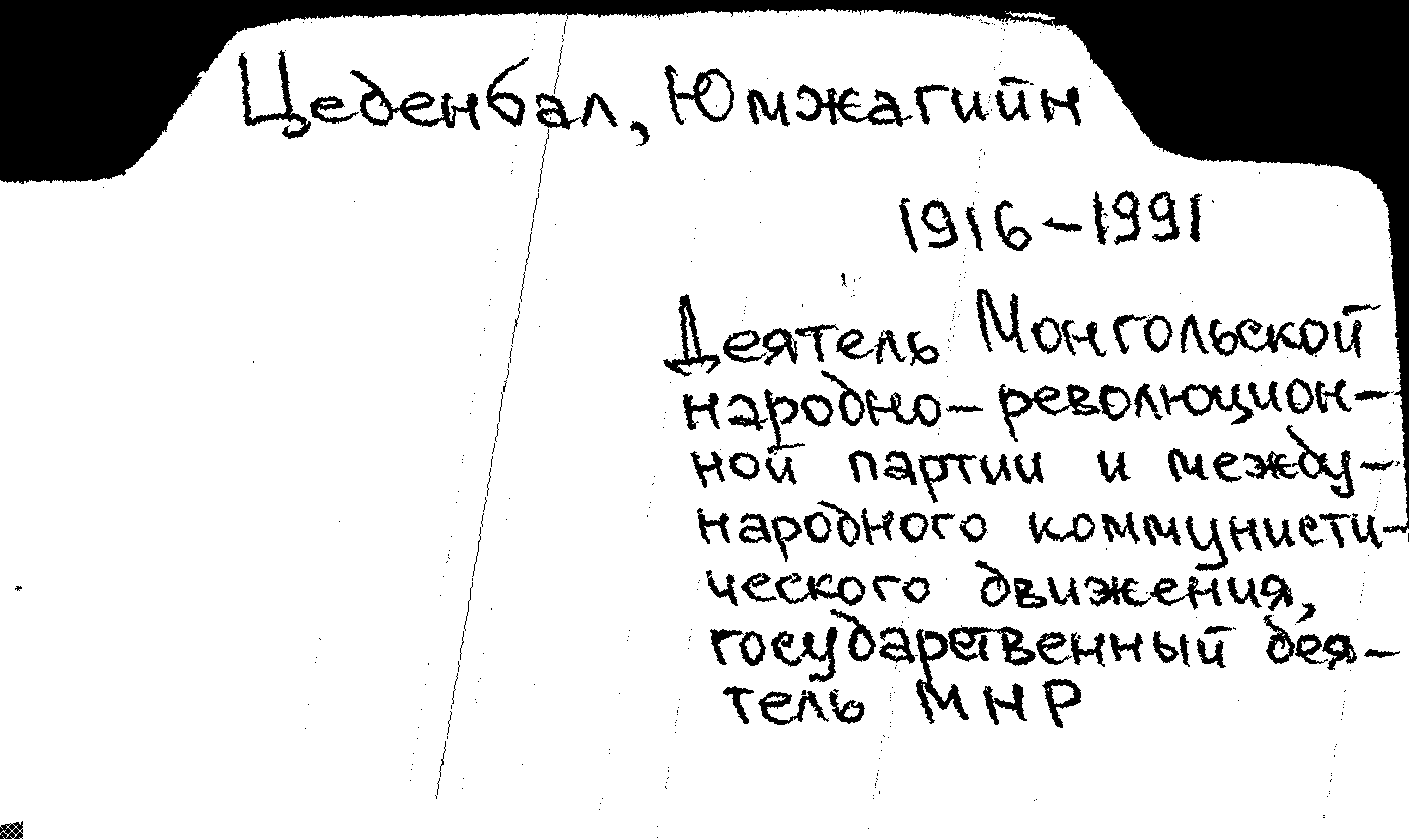 Цеденбал, Юмжагийн
1916-1991
Деятель Монгольской
народно-революцион-
ной партии и между-
народного коммунисти-
ческого движения,
государственный дея-
тель МНР